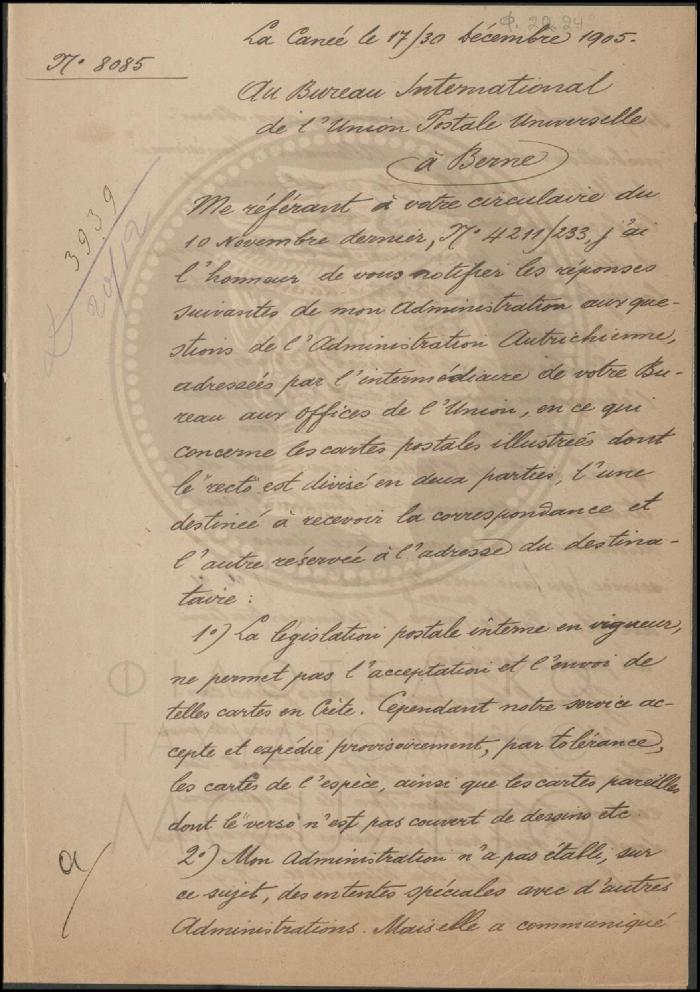 Φ. 22.24
La Caneé le 17/30 Décembre 1905.
Nº 8085
Au Bureau International
de l'Union Postale Universelle
à Berne
3939
20/12
Me référant à votre circulaire du
10 Novembre dernier, Nº 4211/233, j'ai
l'honneur de vous notifier les réponses
suivantes de mon Administration aux que-
stions de l'Administration Autrichienne,
adresseés par l'intermédiaire de votre Bu-
reau aux offices de l'Union, en ce qui
concerne les cartes postales illustreés dont
le "recto" est divisé en deux parties, l'une
destineé à recevoir la correspondance et
l'autre réserveé à l'adresse du destina-
taire :
1º) La législation postale interne en vigueur,
ne permet pas l'acceptation et l'envoi de
telles cartes en Crète. Cependant notre service ac-
cepte et expédie provisoirement, par tolérance,
les cartes de l'espèce, ainsi que les cartes pareilles
dont le "verso" n'est pas couvert de dessins etc.
2º) Mon Administration n'a pas établi, sur
ce sujet, des ententes spéciales avec d'autres
Administrations. Mais elle a communiqué
a/
ΦΙΛΟΤΕΛΙΚΟ
ΤΑΧΥΔΡΟΜΙΚΟ
ΜΟΥΣΕΙΟ